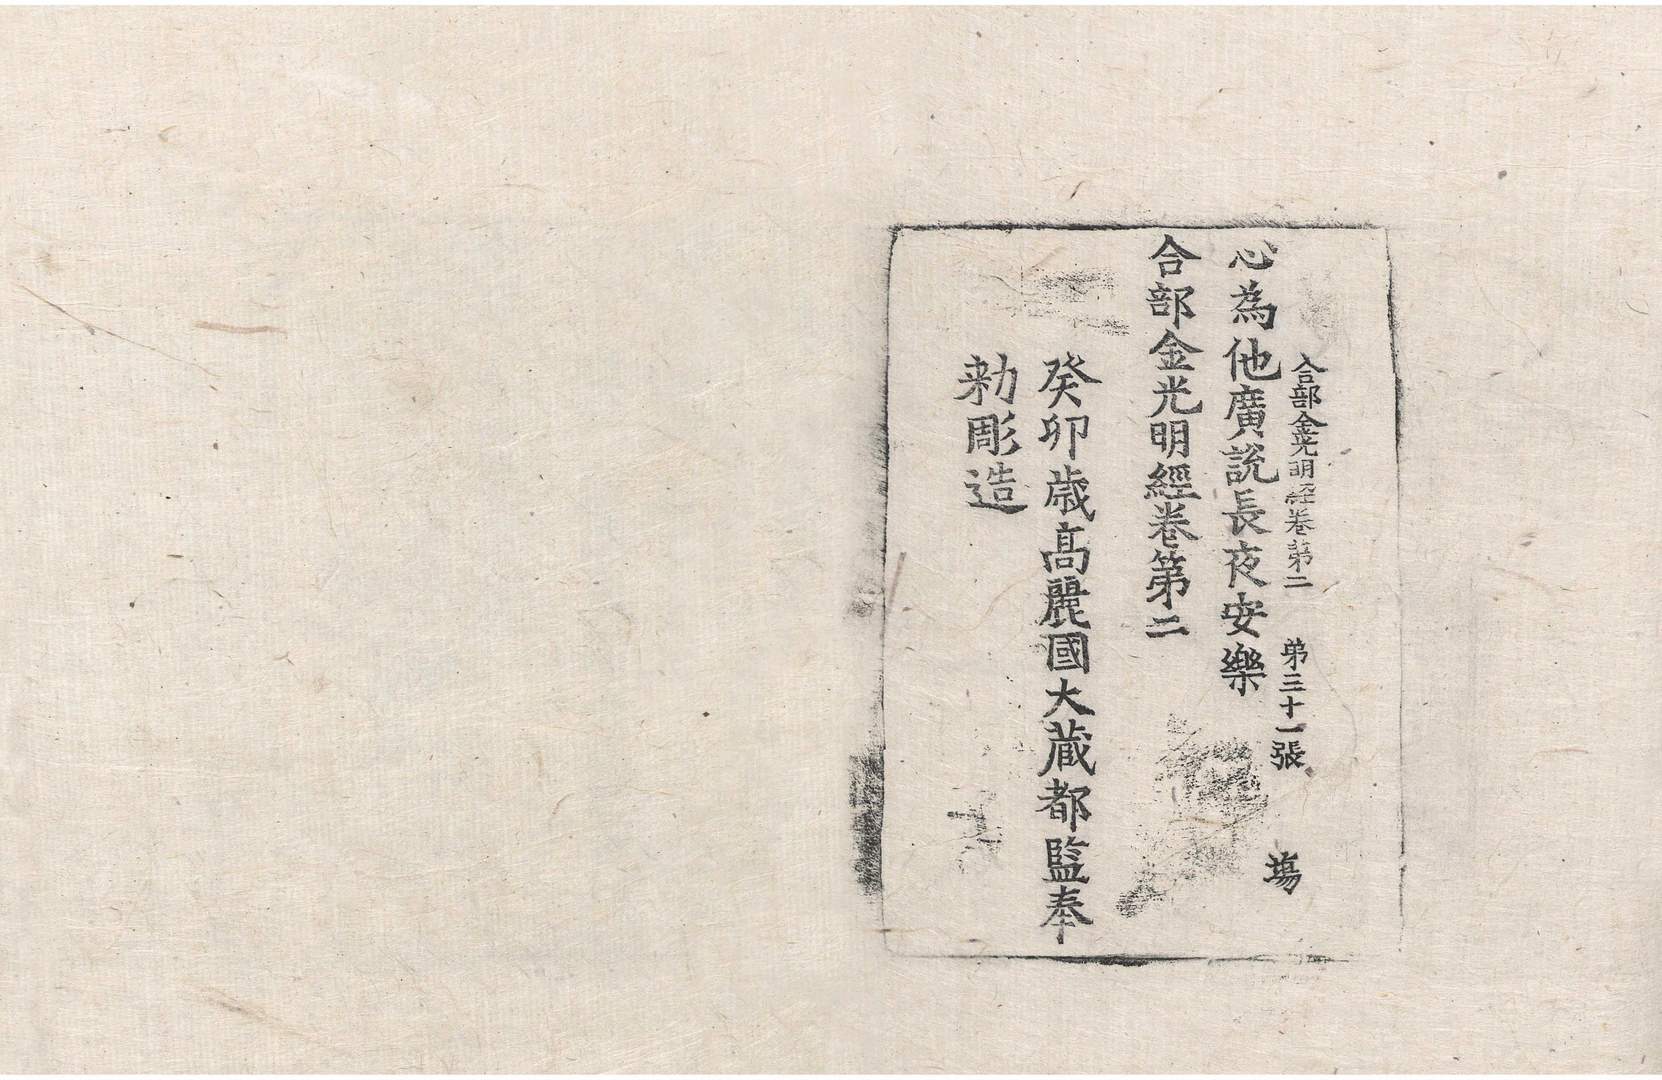 合部金光明經卷第二 第三十一張 塲
心為他廣說長夜安樂
合部金光明經卷第二
癸卯歲高麗國大藏都監奉
勑彫造